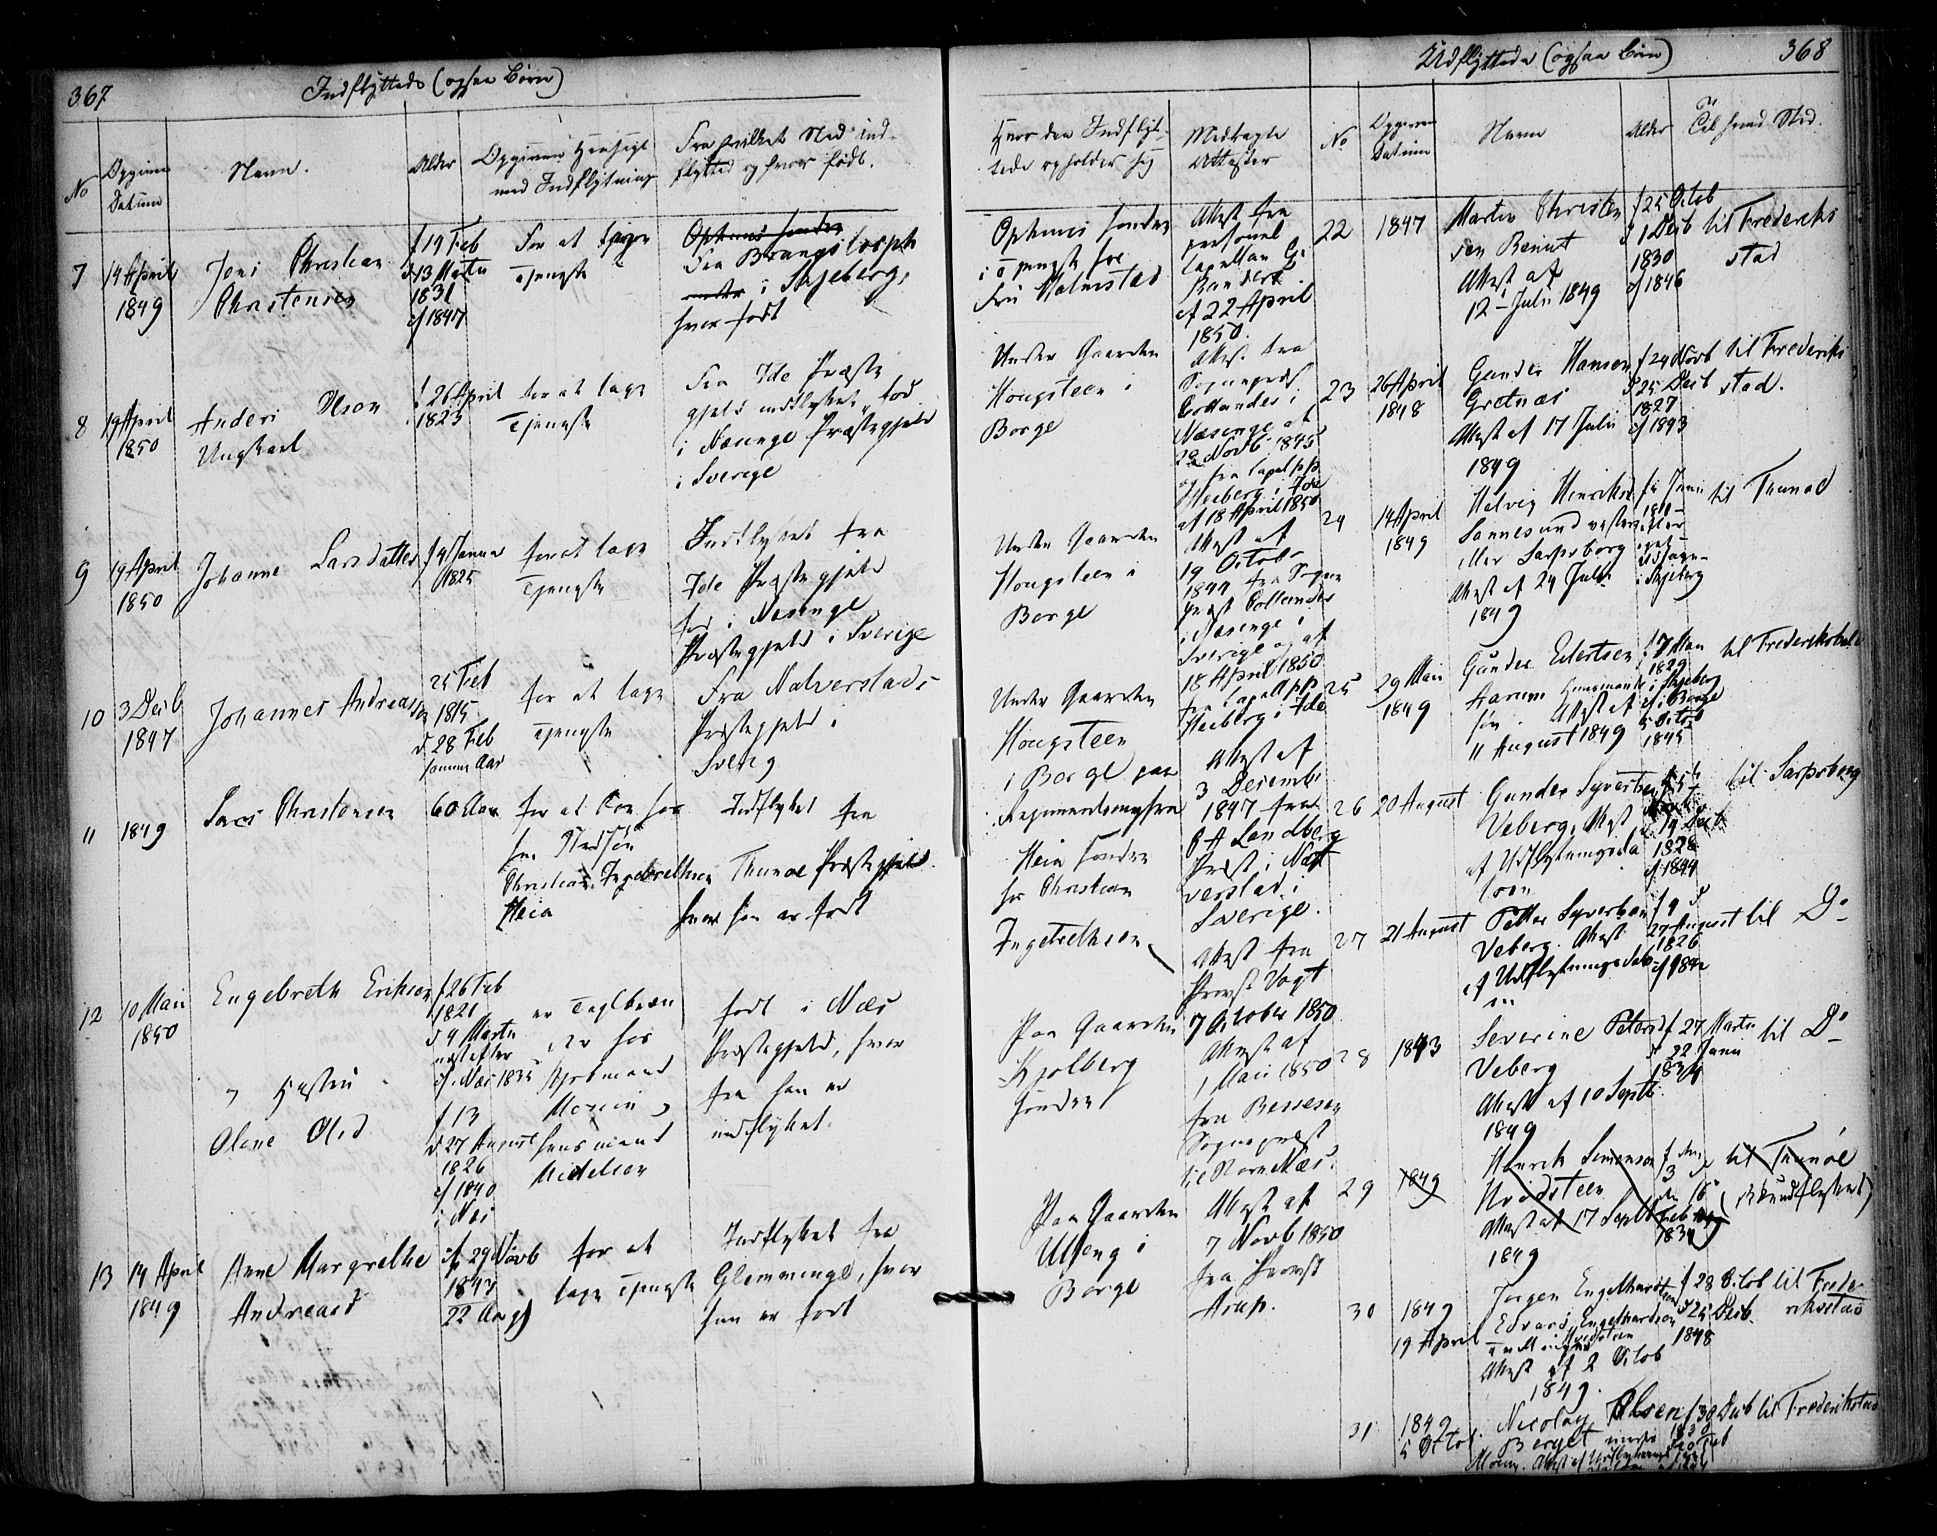 367
Indflyttede (ogsaa Børn)
No
Opgiven
Datum
Navn.
Alder
Opgiven Hensigt
med Indflytning
Fra hvilket Sted ind-
flyttet og hvor født.
7
14 April
1849
Jens Christian
Christensen
f 19 Feb
d 13 Marts
1831
cf 1847
For at søge
Tjeneste
Ophuus søndre
Fra
i Skjeberg,
hvor født
8
19 April
1850
Anders Olson
Ungkarl
f 26 April
1823
for at tage
Tjeneste
Fra Ide Præste
gjeld indflyttet, fød
i Næsenge Præstegjeld
i Sverige
9
19 April
1850
Johanne Larsdatter
f 4 Januar
1825
for at tage
Tjeneste
Indflyttet fra
Ide Præstegjeld
fød i Næsenge
Præstegjeld i Sverige
10
3 Decb
1847
Johannes Andreassen
25 Feb
1815
d. 28 Feb
samme Aar
for at tage
Tjeneste
Fra Nalverstads
Præstegjeld i
Sverig
11
1849
Lars Christensen
60 Aar
for at boe hos
sin Stedsøn
Christian Ingebrethsen
Heia
Indflyttet fra
Thunøe Præstegjeld
hvor han er født
12
10 Mai
1850
Engebreth Eriksen
f 26 Feb
1821
d 4 Marts
næstefter
cf. Næs 1835
" Hustru
Olene Olsd
f 13
d 27 August
1826
cf 1840
i Næs
er Teglbræn
der hos
Kjøbmand
født i Næs
Præstegjeld, hvor
fra han er
indflyttet.
13
14 April
1849
Anne Margrethe
Andreasd
cf 29 Novb
1843
22 Aar
for at
tage Tjeneste
Indflyttet fra
Glemminge, hvor
hun er født
Hvor den Indflyt-
tede opholder sig
Medbragte
Attester
Ophuus søndre
i Tjeneste hos
Fru Malmstad
Attest fra
personel
Capellan G.
af 22 April
1850.
Under Gaarden
Hougsteen i
Borge
Attest fra
Sognepræst
Collander i
Næsenge af
28 Novb 1845
og fra Capel pp
Heiberg i Ide
af 18 April 1850
Under Gaarden
Hougsteen i
Borge
Attest af
19 Octob
1844 fra Sogne
præst Collander
i Næsenge i
Sverige og af
18 April 1850
fra Capell pp
Heiberg i Ide
Under Gaarden
Hougsteen
i Borge paa
Attest af
3 Decembr
1847 fra
P A Landberg
Præst i Nal
verstad i
Sverige.
Heia søndre
hos Christian
Ingebrethsen
Attest fra
Provst Vogt
7 October 1850
Paa Gaarden
Kjølberg
søndre
Attest af
1 Mai 1850
fra Bessesen
Sognepræst
til Næs.
Paa Gaarden
Ulfeng i
Borge
Attest af
7 Novb 1850
fra Provst
Arup.
Udflyttede (ogsaa Børn)
368
No
Opgiven
Datum
Navn
Alder
Til hvad Sted
22
1847
Martin Christen
sen Beinut
Attest af
12 Juli 1849
f 25 Octob
d 1 Decb
1830
cf 1846
til Frederiks
stad
23
26 April
1848
Gunder Hansen
Gretnæs
Attest af 17 Juli
1849
f 24 Novb
d 25 Decb
1827
cf 1843
til Frederiks
stad.
24
14 April
1849
Helvig Hinriksd
Sannesund vestre
eller Sarpsborg
Attest af 24 Juli
1849
i Skjeberg
til Thunøe
25
29 Mai
1849
Gunder Eilertsen
Aarum Huusmands
søn. Attest af
11 August 1849
f 7 Mai
1829
i Skjeberg
cf i Borge
5 Octob
1845
til Frederikshald
26
20 August
Gunder Syvertsen
Veberg, Attest
af Udflytningsda
toen
19 Decb
1828
cf 1844
til Sarpsborg
27
21 August
Petter Syvertsen
Veberg. Attest
af Udflytningsdato
en
f 9 d
27 August
1826
cf 1842
til Do
28
1843
Severine Petersd
Veberg
Attest af 10 Septb.
1849
f 27 Marts
d 22 Juni
1824
til Do
29
1849
Henrik Simensen
Hvidsteen
Attest af 17 Septb
1849
1834
til Thunøe
(ikke udflyttet)
30
1849
19 April
Jørgen Engelhardtsen
Edvard Engelhardtsen
Attest af 2 Octob
1849.
f 28 Octob
d 25 Decb.
1848
til Frede-
rikstad
31
1849
5 Octob
Nicolay Olsen
Berget
f 30 Decb
1830
til Frederikstad